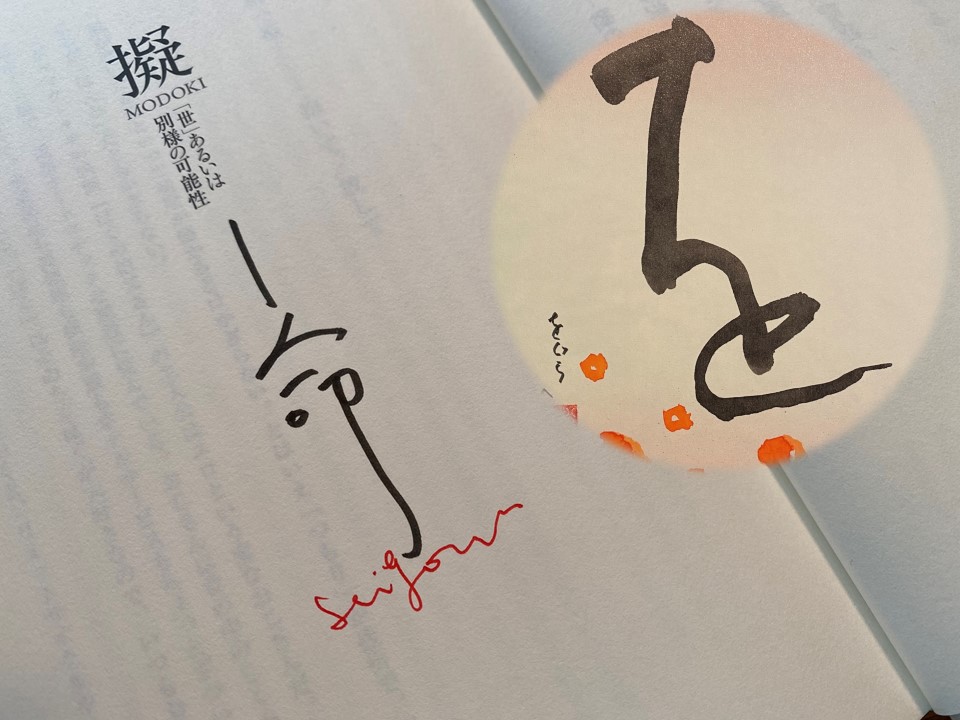 擬
MODOKI
「世」あるいは
別様の可能性
命
Seigow
を